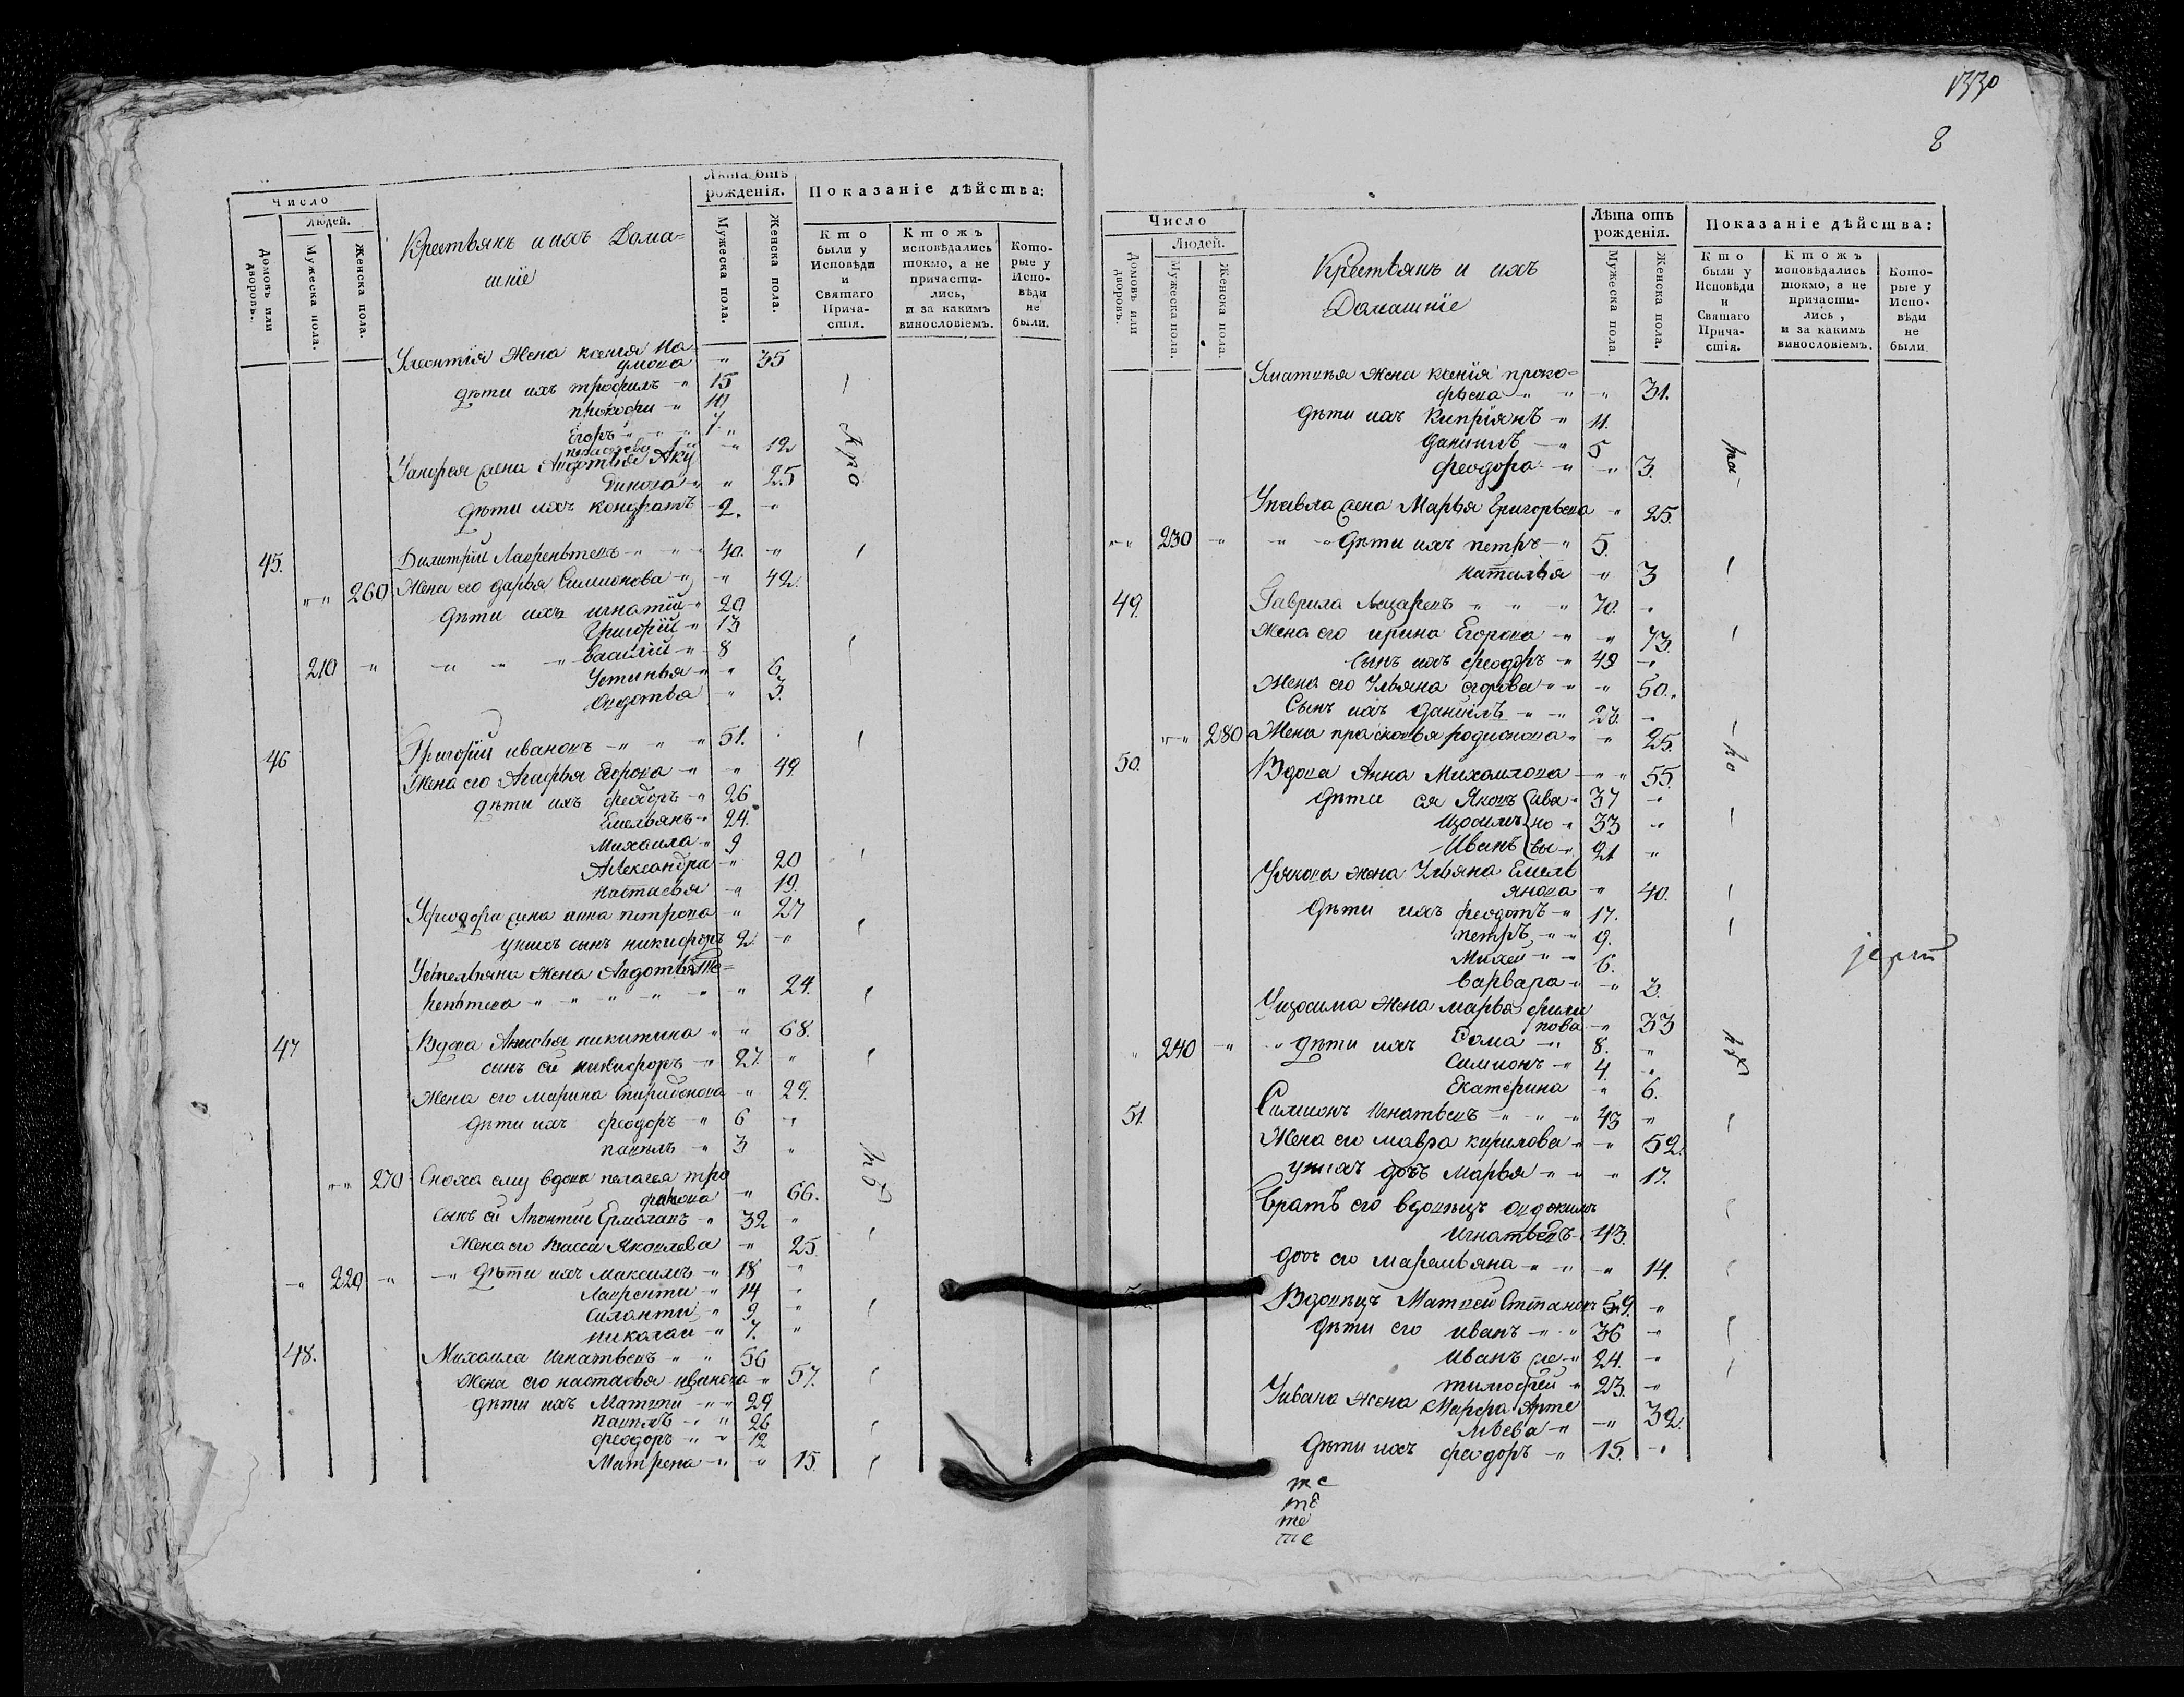 Число
Людей.
Домовъ или дворовъ.
Мужеска пола.
Женска пола.
Крестьянъ и ихъ Дома=
шніе
Лѣта отъ рожденія.
Мужеска пола.
Женска пола.
Показаніе дѣйства:
Кто были у Исповѣди и Святаго Причастія.
Ктожъ исповѣдались токмо, а не причастились, и за какимъ винословіемъ.
Которые у Исповѣди не были.
Улеонтія жена ксенія На
умова " 35
дѣти ихъ трофимъ " 15
прокофи " 10
Егоръ " 7 "
пелагѣва " 12
Узахарья жена Авдотья Аку
динова " " 25
дѣти ихъ кондратъ 2. "
45. Димитрій Лаврентьевъ " " " 40. "
" " 260 Жена его дарья Симионова " " 42.
дѣти ихъ игнатій " 20
Григорій " 13
210 " " " " василій " 8
Устинья " " 6
Авдотья " 3.
46 Григорій ивановъ " " " 51.
Жена его Агафья Егорова " " 49.
дѣти ихъ феодоръ " 26
Емельянъ " 24.
Михаила " 9
Александра " 20
настасья " 19.
Уфеодора жена анна петрова " 27
унихъ сынъ никифоръ 2. "
Уемельяна жена Авдотья Те=
рентьева " " " " " " 24.
47 Вдова Анисья никитина " " 68.
сынъ ей никифоръ " 27. "
Жена его марина Спиридонова " 29.
дѣти ихъ феодоръ " 6 "
павелъ " 3 "
" " 270 Сноха ему вдова пелагея тро
фимова " 66.
сынъ ей Леонтий Ермолаевъ " 32 "
жена его Васса Яковлева " 25.
" 220 " " дѣти ихъ максимъ " 18 "
Лаврентии " 14 "
силантии " 9. "
николаи " 7. "
48. Михаила Игнатьевъ " " 56
жена его настасья иванова " 57.
дѣти ихъ Матвѣи " " 29
павелъ " " 26
феодоръ " " 12
Матрена " " " 15.
1330
8
Число
Людей.
Домовъ или дворовъ.
Мужеска пола.
Женска пола.
Крестьянъ и ихъ
Домашніе
Лѣта отъ рожденія.
Мужеска пола.
Женска пола.
Показаніе дѣйства:
Кто были у Исповѣди и Святаго Причастія.
Ктожъ исповѣдались токмо, а не причастились, и за какимъ винословіемъ.
Которые у Исповѣди не были.
Уматвѣя жена ксенія проко=
фьева " " " 31.
дѣти ихъ Кипріянъ " 11.
даниилъ " 5
феодора " " 3.
Упавла жена Марья Григорьева " 25.
" " 230 " " " дѣти ихъ петръ " 5.
наталья " 3
49. Гаврила Лазаревъ " " " 70. "
Жена его ирина Егорова " " 73.
сынъ ихъ феодоръ " 49 "
Жена его Ульяна егорова " " " 50.
Сынъ ихъ даниилъ " " 23. "
" " 280 Жена прасковья родионова " " 25.
50. Вдова Анна Михаилова " " 55.
дѣти ея Яковъ ива " 37 "
изосимъ но " 33 "
Иванъ вы " 21 "
Уякова жена Ульяна Емель
янова " 40.
дѣти ихъ феодотъ " 17.
петръ " " 9.
Михеи " " 6.
варвара " " 3.
Уизосима жена марья фили
пова " 33
" 240 " " дѣти ихъ Фома " 8. "
Симионъ " 4. "
Екатерина " 6.
51. Симионъ Игнатьевъ " " " 43 "
Жена его мавра кирилова " " 52.
унихъ дочь Марья " " " 17.
братъ его вдовецъ евдокимъ
Игнатьевъ. 43.
дочь его маремьяна " " " 14.
Вдовецъ Матвеи Степановъ 59. "
дѣти его иванъ " " 36 "
Иванъ же " 24. "
тимофей " 23. "
Уивана жена Марфа Арте
мьева " " 32.
дѣти ихъ феодоръ " 15. "
те
те
те
те